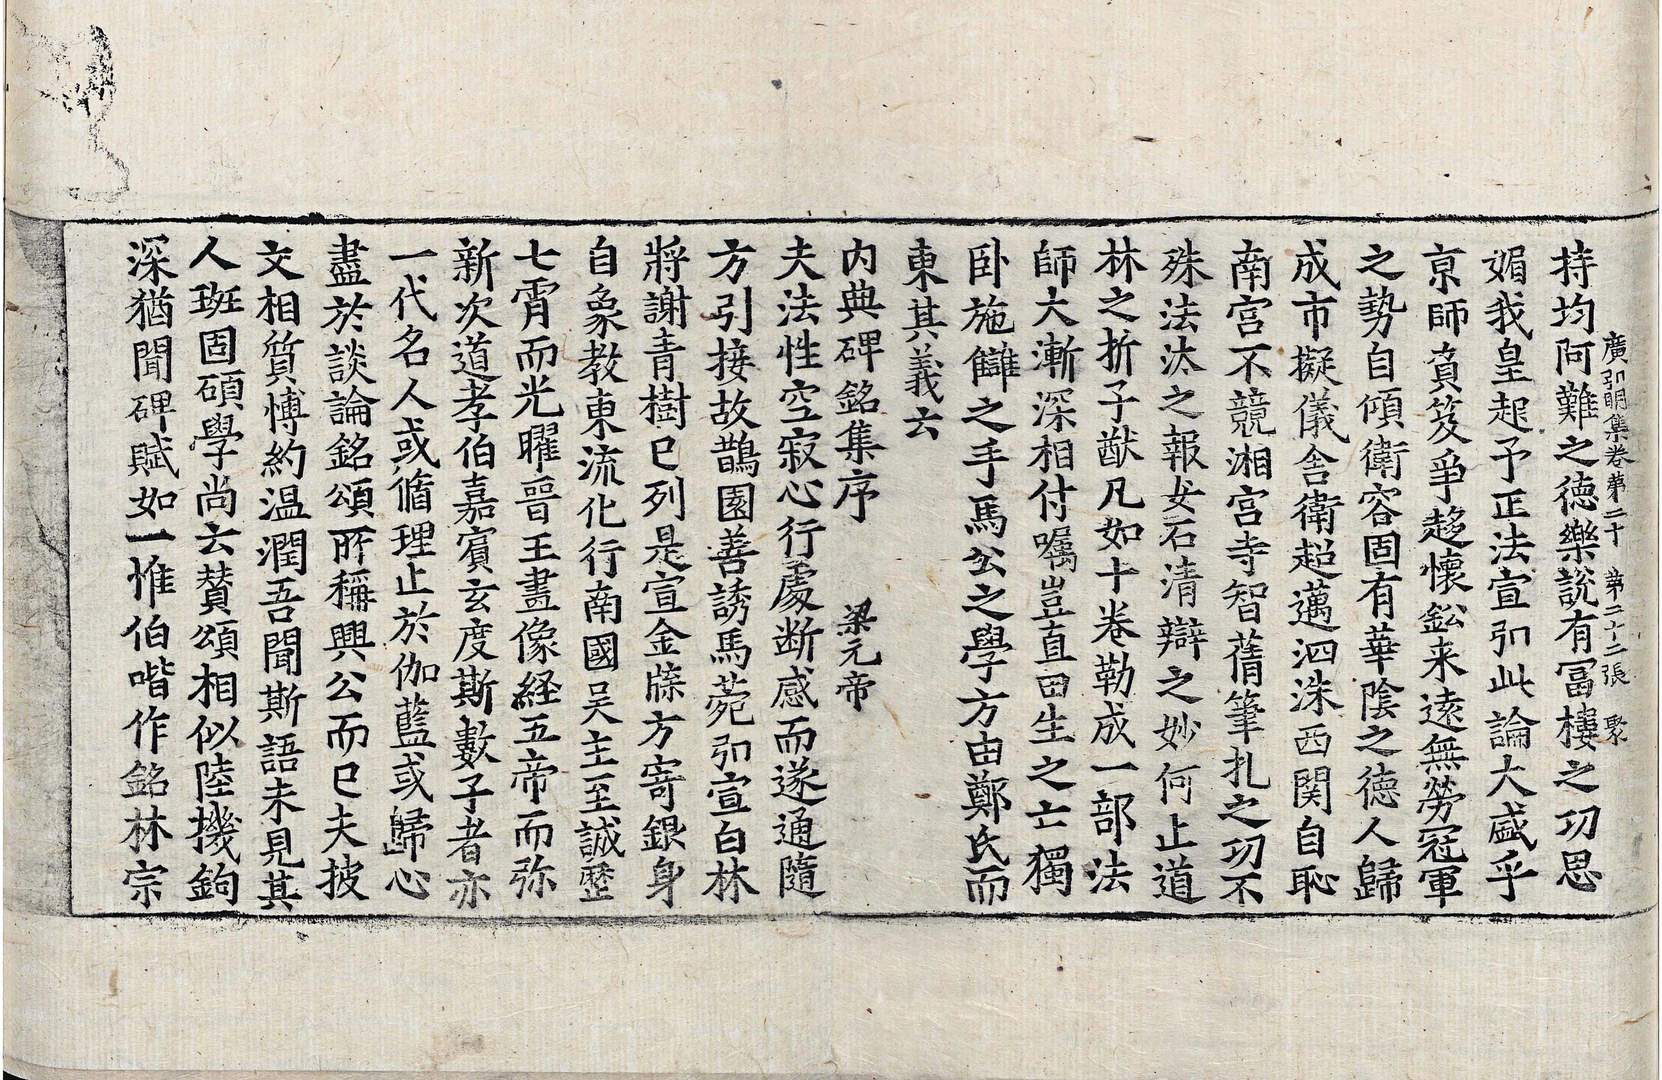 廣弘明集卷第二十　第二十二張　聚
持均阿難之德樂說有冨樓之功思
媚我皇起予正法宣弘此論大盛乎
京師負笈爭趍懷鈆来遠無勞冠軍
之勢自傾衛容固有華陰之德人歸
成市擬儀舍衛超邁泗洙西関自恥
南宮不競湘宮寺智蒨筆扎之功不
殊法汰之報安石清辯之妙何止道
林之折子猷凡如十卷勒成一部法
師大漸深相付囑豈直田生之亡獨
卧施讎之手馬公之學方由鄭氏而
東其義云
内典碑銘集序　梁元帝
夫法性空寂心行處断感而遂通隨
方引接故鵲園善誘馬菀弘宣白林
將謝青樹已列是宣金牒方寄銀身
自象教東流化行南國吴主至誠歷
七霄而光曜晉王畫像経五帝而弥
新次道孝伯嘉賓玄度斯數子者亦
一代名人或脩理止於伽藍或歸心
盡於談論銘頌所稱興公而已夫披
文相質愽約温潤吾聞斯語未見其
人班固碩學尚云賛頌相似陸機鉤
深猶聞碑賦如一惟伯喈作銘林宗